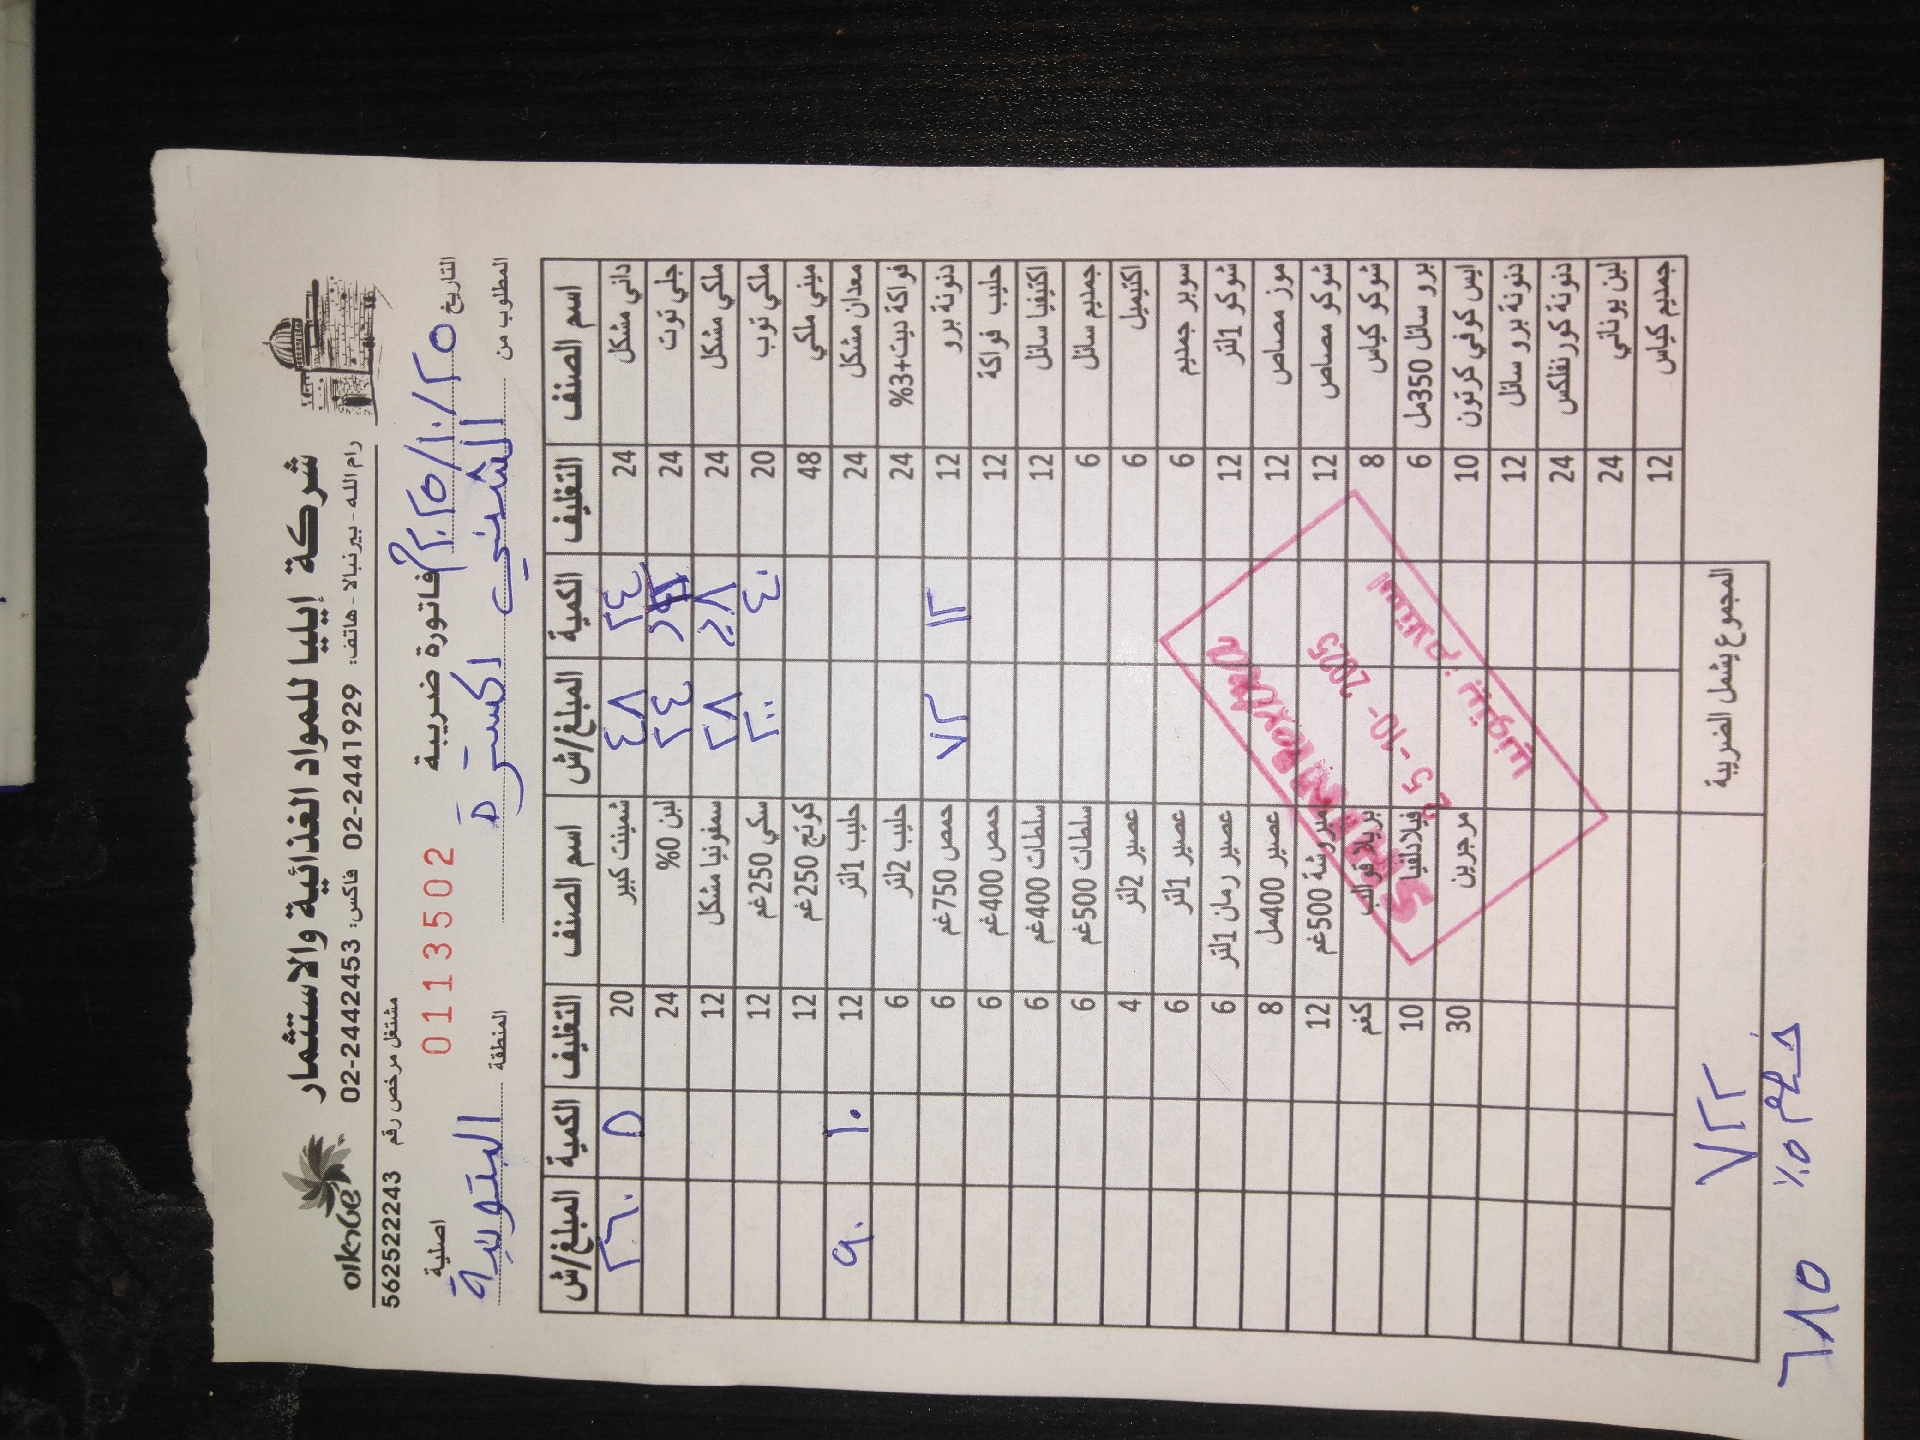 شركة إيليا للمواد الغذائية والاستثمار
رام الله - بيرنبالا - هاتف: 02-2441929 فاكس: 02-2442453
مشتغل مرخص رقم 562522243
فاتورة ضريبية
0113502
اصلية
التاريخ ٢٠٢٥/١٠/٢٥
المطلوب من الشني اكسترا
المنطقة
اسم الصنف التغليف الكمية المبلغ/ش اسم الصنف التغليف الكمية المبلغ/ش
داني مشكل 24 ٢٤ ٤٨ شمينت كبير 20 ٥ ٢٦٠
جلي توت 24 ٢٤ لبن 0% 24
ملكي مشكل 24 ٢٨ ٢٨ سمفونيا مشكل 12
ملكي توب 20 ٤٠ ٢٠٠ سكي 250غم 12
ميني ملكي 48 كوتج 250غم 12
معدان مشكل 24 حليب 1لتر 12 ٢٠ ٩٠
فواكة ديت+3% 24 حليب 2لتر 6
دنونة برو 12 ١٢ ٧٢ حمص 750غم 6
حليب فواكة 12 حمص 400غم 6
اكتيفيا سائل 12 سلطات 400غم 6
جمديم سائل 6 سلطات 500غم 6
اكتيميل 6 عصير 2لتر 4
سوبر جمديم 6 عصير 1لتر 6
شوكو 1لتر 12 عصير رمان 1لتر 6
موز مصاص 12 عصير 400مل 8
شوكو مصاص 12 مبروشة 500غم 12
شوكو كياس 8 بريزا قوالب كغم
برو سائل 350مل 6 فيلادلفيا 10
ايس كوفي كرتون 10 مرجرين 30
دنونة برو سائل 12
دنونة كورنفلكس 24
لبن يوناني 24
جمديم كياس 12
المجموع يشمل الضريبة ٧٢٢
٥٪
٦٨٥
25 -10- 2025